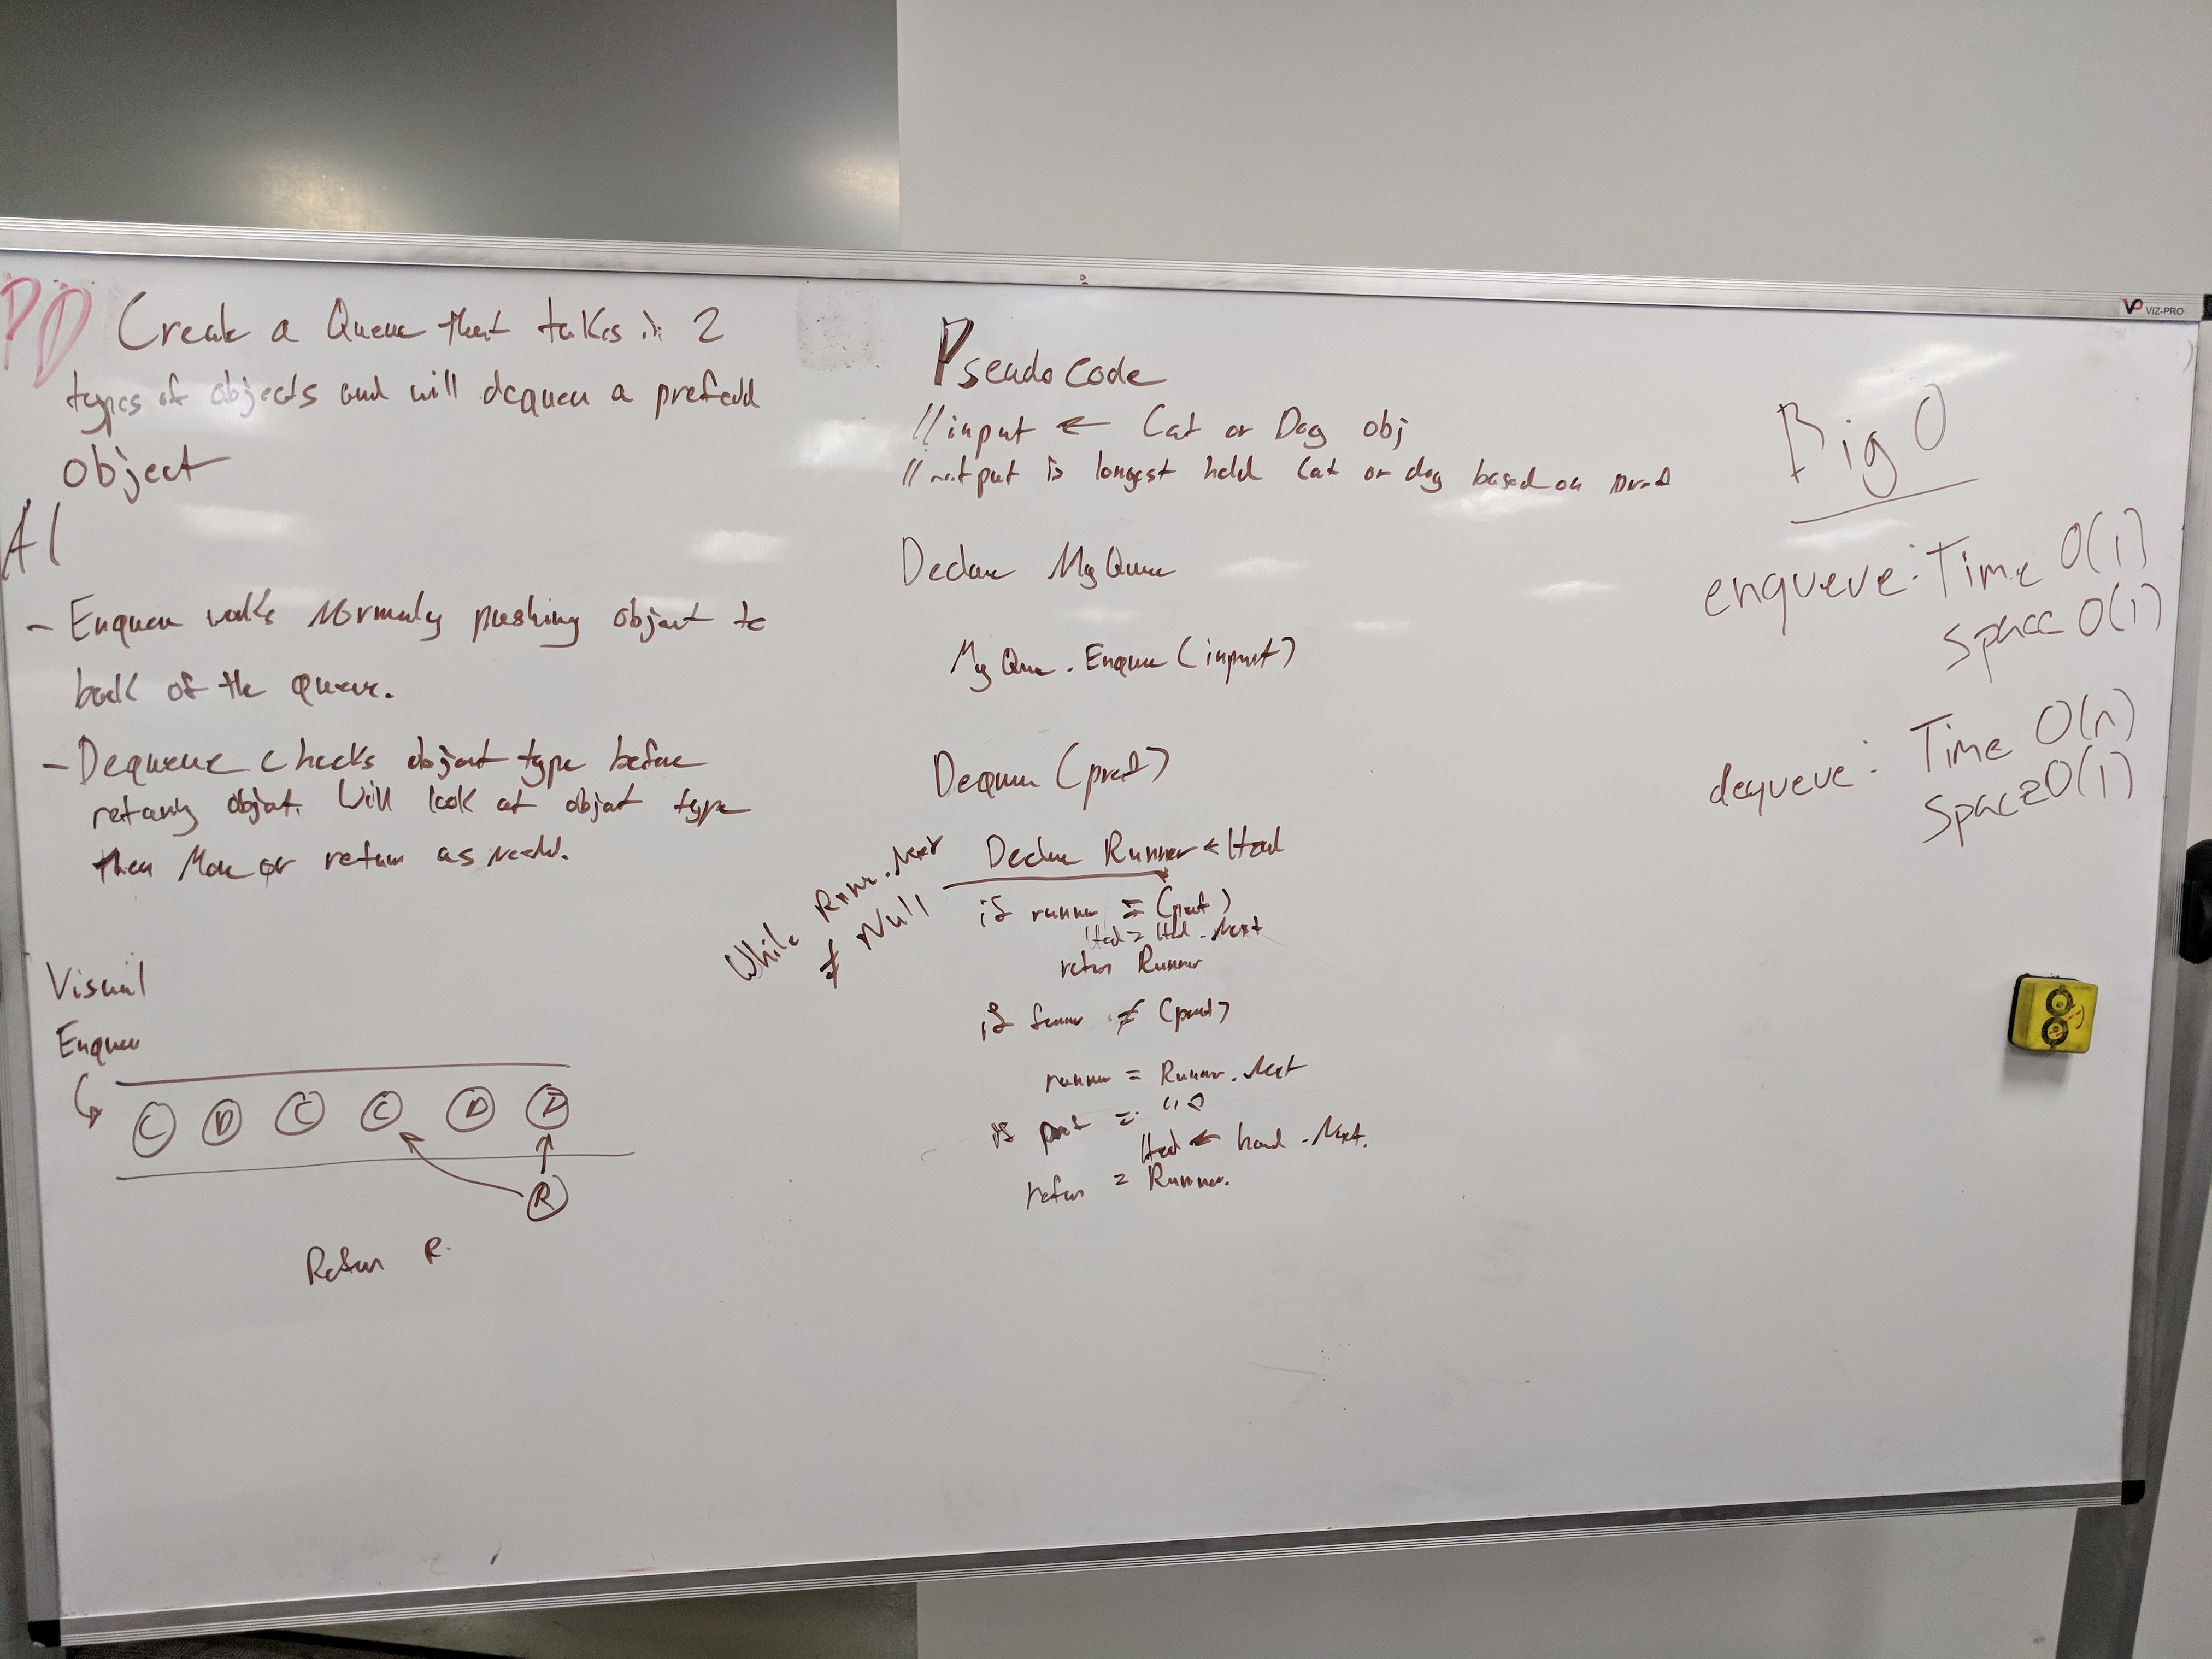 PD Create a Queue that takes in 2
types of objects and will dequeu a prefedd
object
Al
- Enqueu works Normaly pushing object to
back of the queue.
- Dequeue checks object type before
object. Will look at object type
then Move or return as needed.
Visual
Enqueu
C D C C D D
R
Return R.
Pseudo code
//input ← Cat or Dog obj
//output is longest held Cat or dog based on pref
Declare MyQueue
MyQue.Enqueue(input)
Dequeue (pref)
While Runner.Next
≠ Null
Declare Runner ← Head
if runner = (pref)
Head = Head.Next
return Runner
if runner ≠ (pref)
runner = Runner.Next
if pref = ""
Head ← head.Next.
return = Runner.
Big O
enqueue: Time O(1)
Space O(1)
dequeue: Time O(n)
Space O(1)
VP VIZ-PRO